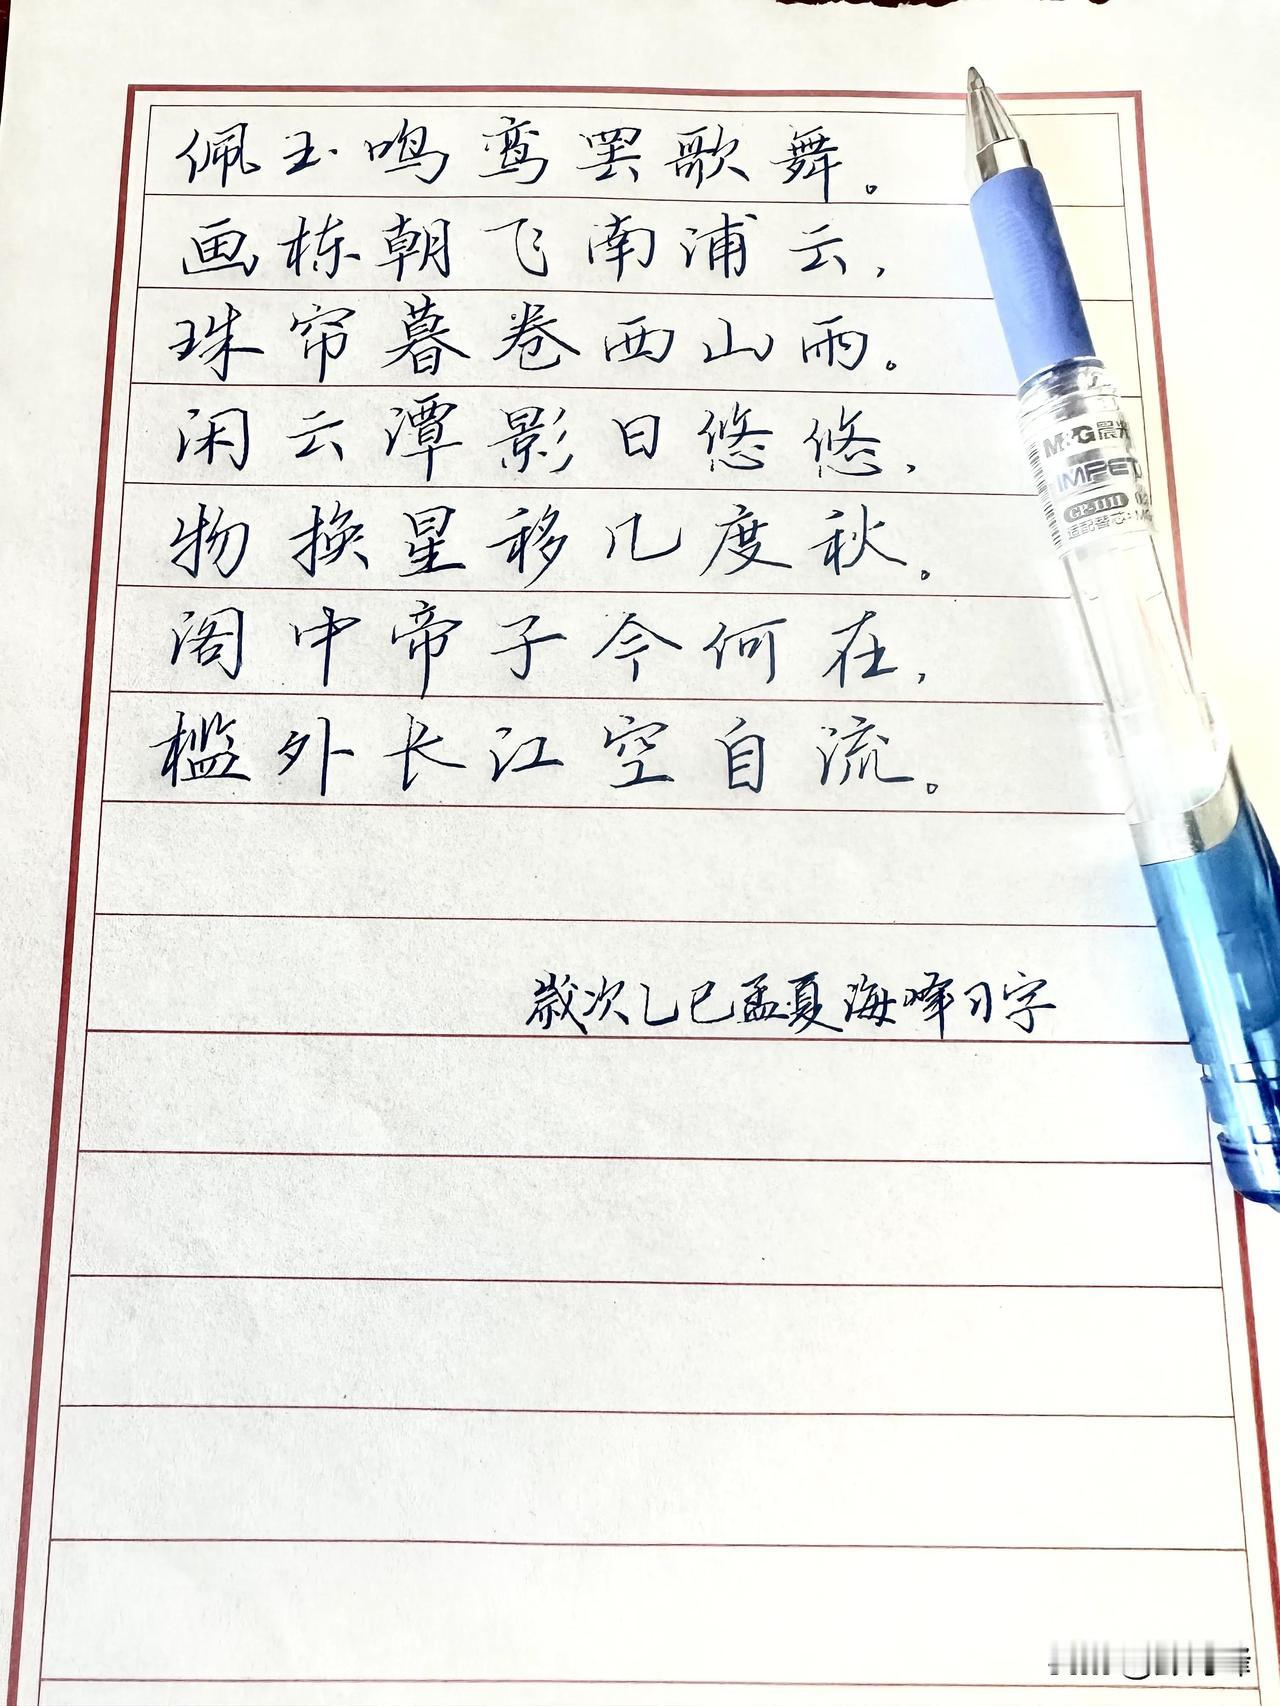 佩玉鸣鸾罢歌舞。
画栋朝飞南浦云,
珠帘暮卷西山雨。
闲云潭影日悠悠,
物换星移几度秋。
阁中帝子今何在,
槛外长江空自流。
歳次乙巳孟夏海峰习字
M&G晨光
IMPET
GP-1111
适配替芯: